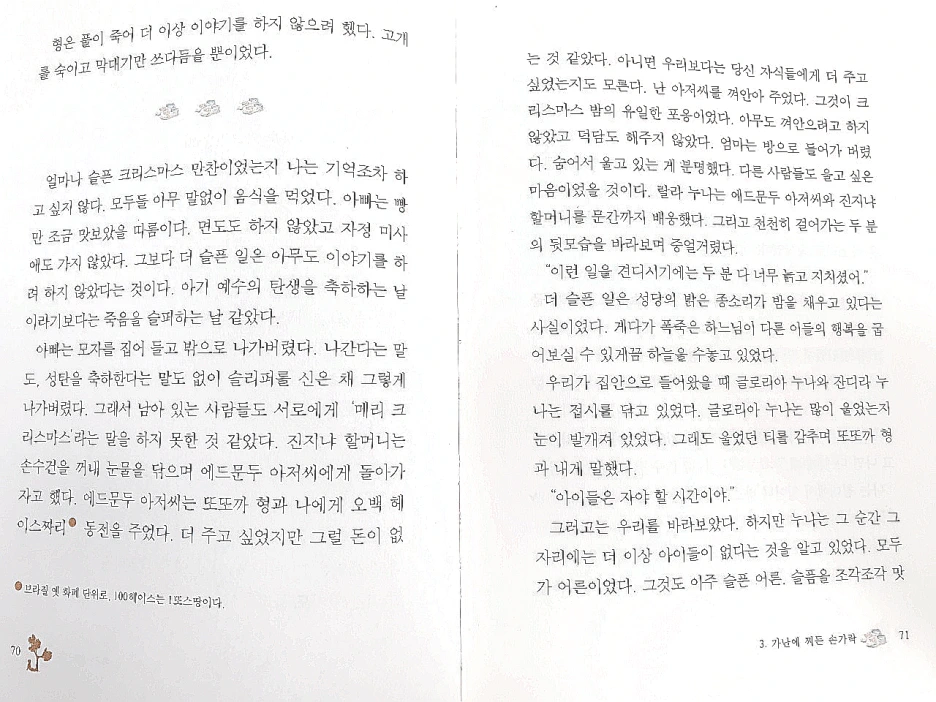 형은 풀이 죽어 더 이상 이야기를 하지 않으려 했다. 고개
를 숙이고 막대기만 쓰다듬을 뿐이었다.
얼마나 슬픈 크리스마스 만찬이었는지 나는 기억조차 하
고 싶지 않다. 모두들 아무 말없이 음식을 먹었다. 아빠는 빵
만 조금 맛보았을 따름이다. 면도도 하지 않았고 자정 미사
에도 가지 않았다. 그보다 더 슬픈 일은 아무도 이야기를 하
려 하지 않았다는 것이다. 아기 예수의 탄생을 축하하는 날
이라기보다는 죽음을 슬퍼하는 날 같았다.
아빠는 모자를 집어 들고 밖으로 나가버렸다. 나간다는 말
도, 성탄을 축하한다는 말도 없이 슬리퍼를 신은 채 그렇게
나가버렸다. 그래서 남아 있는 사람들도 서로에게 ‘메리 크
리스마스’라는 말을 하지 못한 것 같았다. 진지냐 할머니는
손수건을 꺼내 눈물을 닦으며 에드문두 아저씨에게 돌아가
자고 했다. 에드문두 아저씨는 또또까 형과 나에게 오백 헤
이스짜리 동전을 주었다. 더 주고 싶었지만 그럴 돈이 없
브라질 옛 화폐 단위로, 100헤이스는 1또스땅이다.
70
는 것 같았다. 아니면 우리보다는 당신 자식들에게 더 주고
싶었는지도 모른다. 난 아저씨를 껴안아 주었다. 그것이 크
리스마스 밤의 유일한 포옹이었다. 아무도 껴안으려고 하지
않았고 덕담도 해주지 않았다. 엄마는 방으로 들어가 버렸
다. 숨어서 울고 있는 게 분명했다. 다른 사람들도 울고 싶은
마음이었을 것이다. 랄라 누나는 에드문두 아저씨와 진지냐
할머니를 문간까지 배웅했다. 그리고 천천히 걸어가는 두 분
의 뒷모습을 바라보며 중얼거렸다.
“이런 일을 견디시기에는 두 분 다 너무 늙고 지치셨어.”
더 슬픈 일은 성당의 밝은 종소리가 밤을 채우고 있다는
사실이었다. 게다가 폭죽은 하느님이 다른 이들의 행복을 굽
어보실 수 있게끔 하늘을 수놓고 있었다.
우리가 집안으로 들어왔을 때 글로리아 누나와 잔디라 누
나는 접시를 닦고 있었다. 글로리아 누나는 많이 울었는지
눈이 발개져 있었다. 그래도 울었던 티를 감추며 또또까 형
과 내게 말했다.
“아이들은 자야 할 시간이야.”
그러고는 우리를 바라보았다. 하지만 누나는 그 순간 그
자리에는 더 이상 아이들이 없다는 것을 알고 있었다. 모두
가 어른이었다. 그것도 아주 슬픈 어른. 슬픔을 조각조각 맛
3. 가난에 찌든 손가락 71